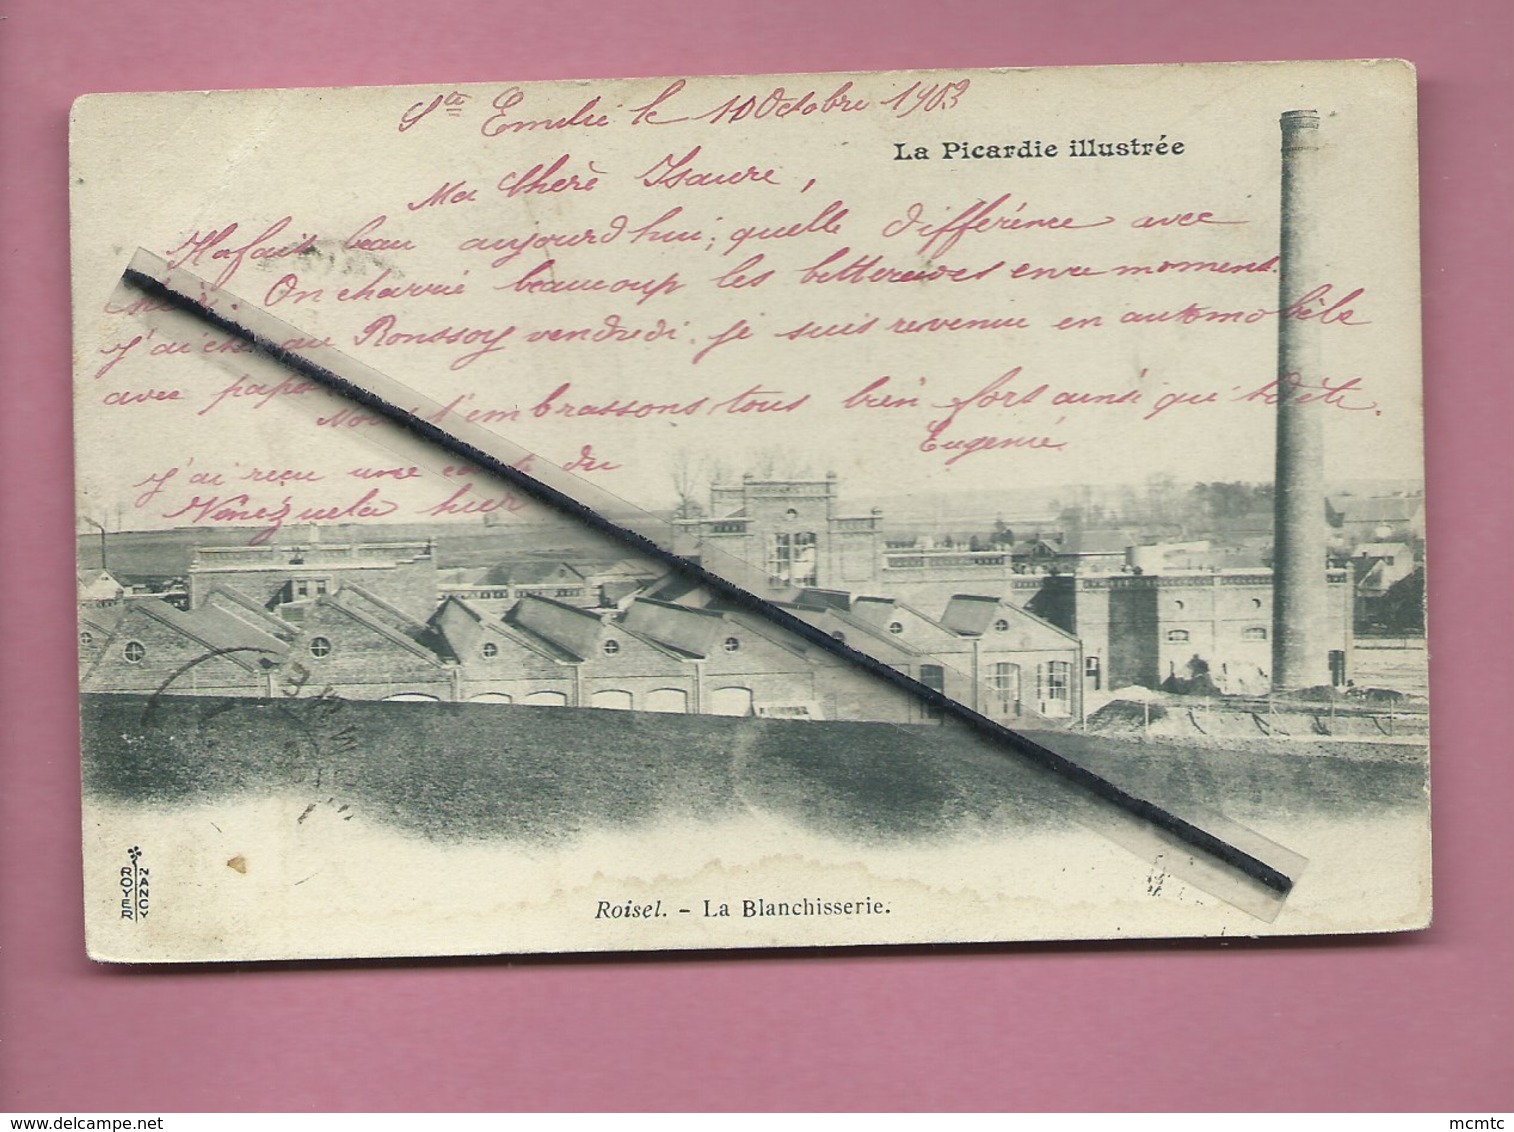 Ste Emilie le 10 Octobre 1903
La Picardie illustrée
Ma Chère Isaure,
Il a fait beau aujourd'hui, quelle différence avec
hier. On charrie beaucoup les betteraves en ce moment.
J'ai été au Ronssoy vendredi. je suis revenue en automobile
avec papa
Nous t'embrassons tous bien fort ainsi qu'Odète.
Eugénie
J'ai reçu une carte du
Vénézuela hier
ROYER
NANCY
Roisel. - La Blanchisserie.
mcmtc